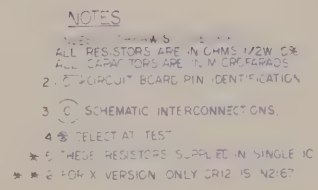 NOTES
ALL RESISTORS ARE IN OHMS 1/2W 5%
ALL CAPACITORS ARE IN MICROFARADS
2. CIRCUIT BOARD PIN IDENTIFICATION
3. C SCHEMATIC INTERCONNECTIONS.
4 * SELECT AT TEST
* 5 THESE RESISTORS SUPPLIED IN SINGLE IC
* * 6 FOR X VERSION ONLY CR12 IS